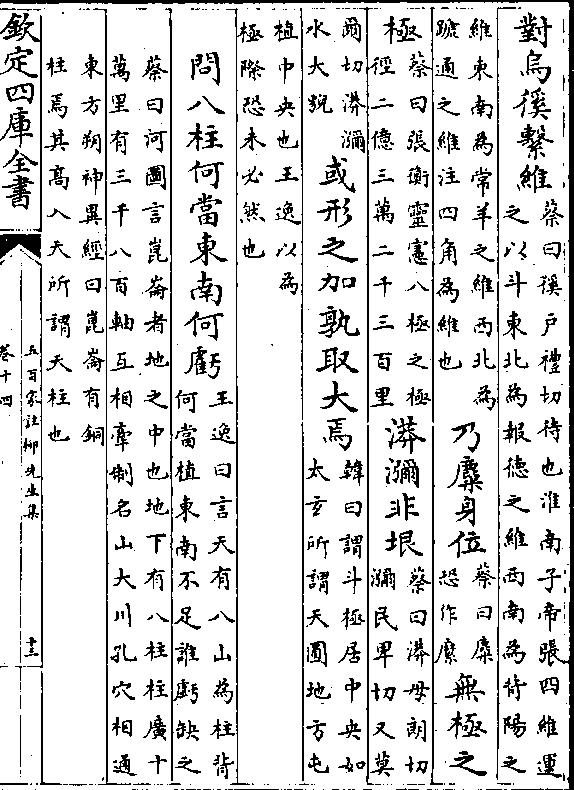 對烏徯繫維蔡曰徯戶禮切待也淮南子帝張四維運
之以斗東北為報德之維西南為背陽之
維東南為常羊之維西北為
蹏通之維注四角為維也乃麋身位蔡曰麋
恐作縻無極之
極蔡曰張衡靈憲八極之極
徑二億三萬二千三百里漭瀰非垠蔡曰漭母朗切
瀰民畀切又莫
爾切漭瀰
水大貌或形之加孰取大焉韓曰謂斗極居中央如
太玄所謂天圜地方屯
植中央也王逸以為
極際恐未必然也
問八柱何當東南何虧王逸曰言天有八山為柱皆
何當植東南不足誰虧缺之
蔡曰河圖言崑崙者地之中也地下有八柱柱廣十
萬里有三千八百軸互相牽制名山大川孔穴相通
東方朔神異經曰崑崙有銅
柱焉其高入天所謂天柱也
欽定四庫全書
五百家註柳先生集
卷十四
十三